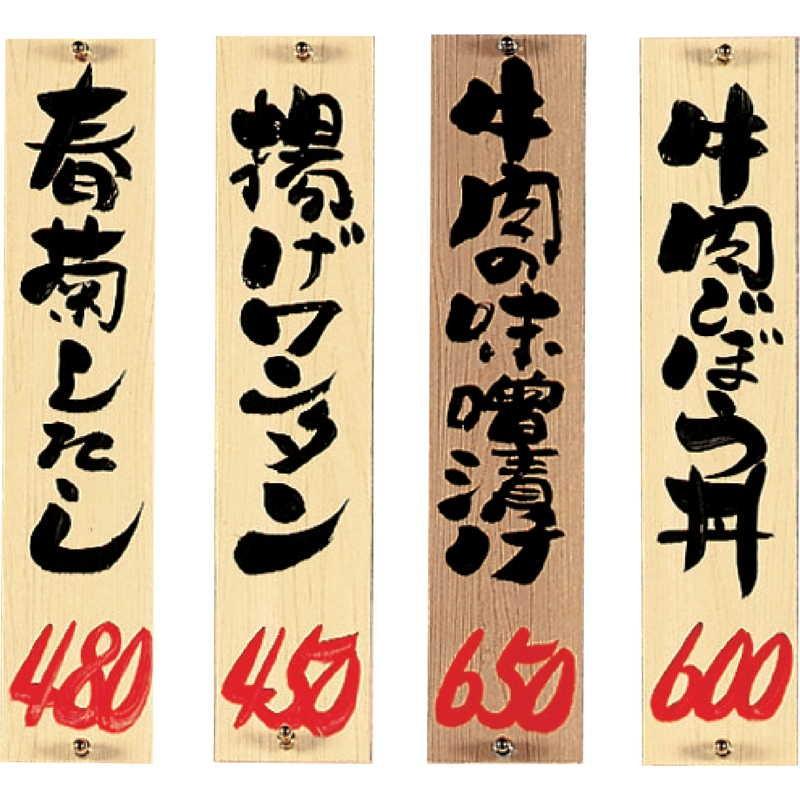 春菊したし
480
揚げワンタン
450
牛肉の味噌漬け
650
牛肉ごぼう丼
600